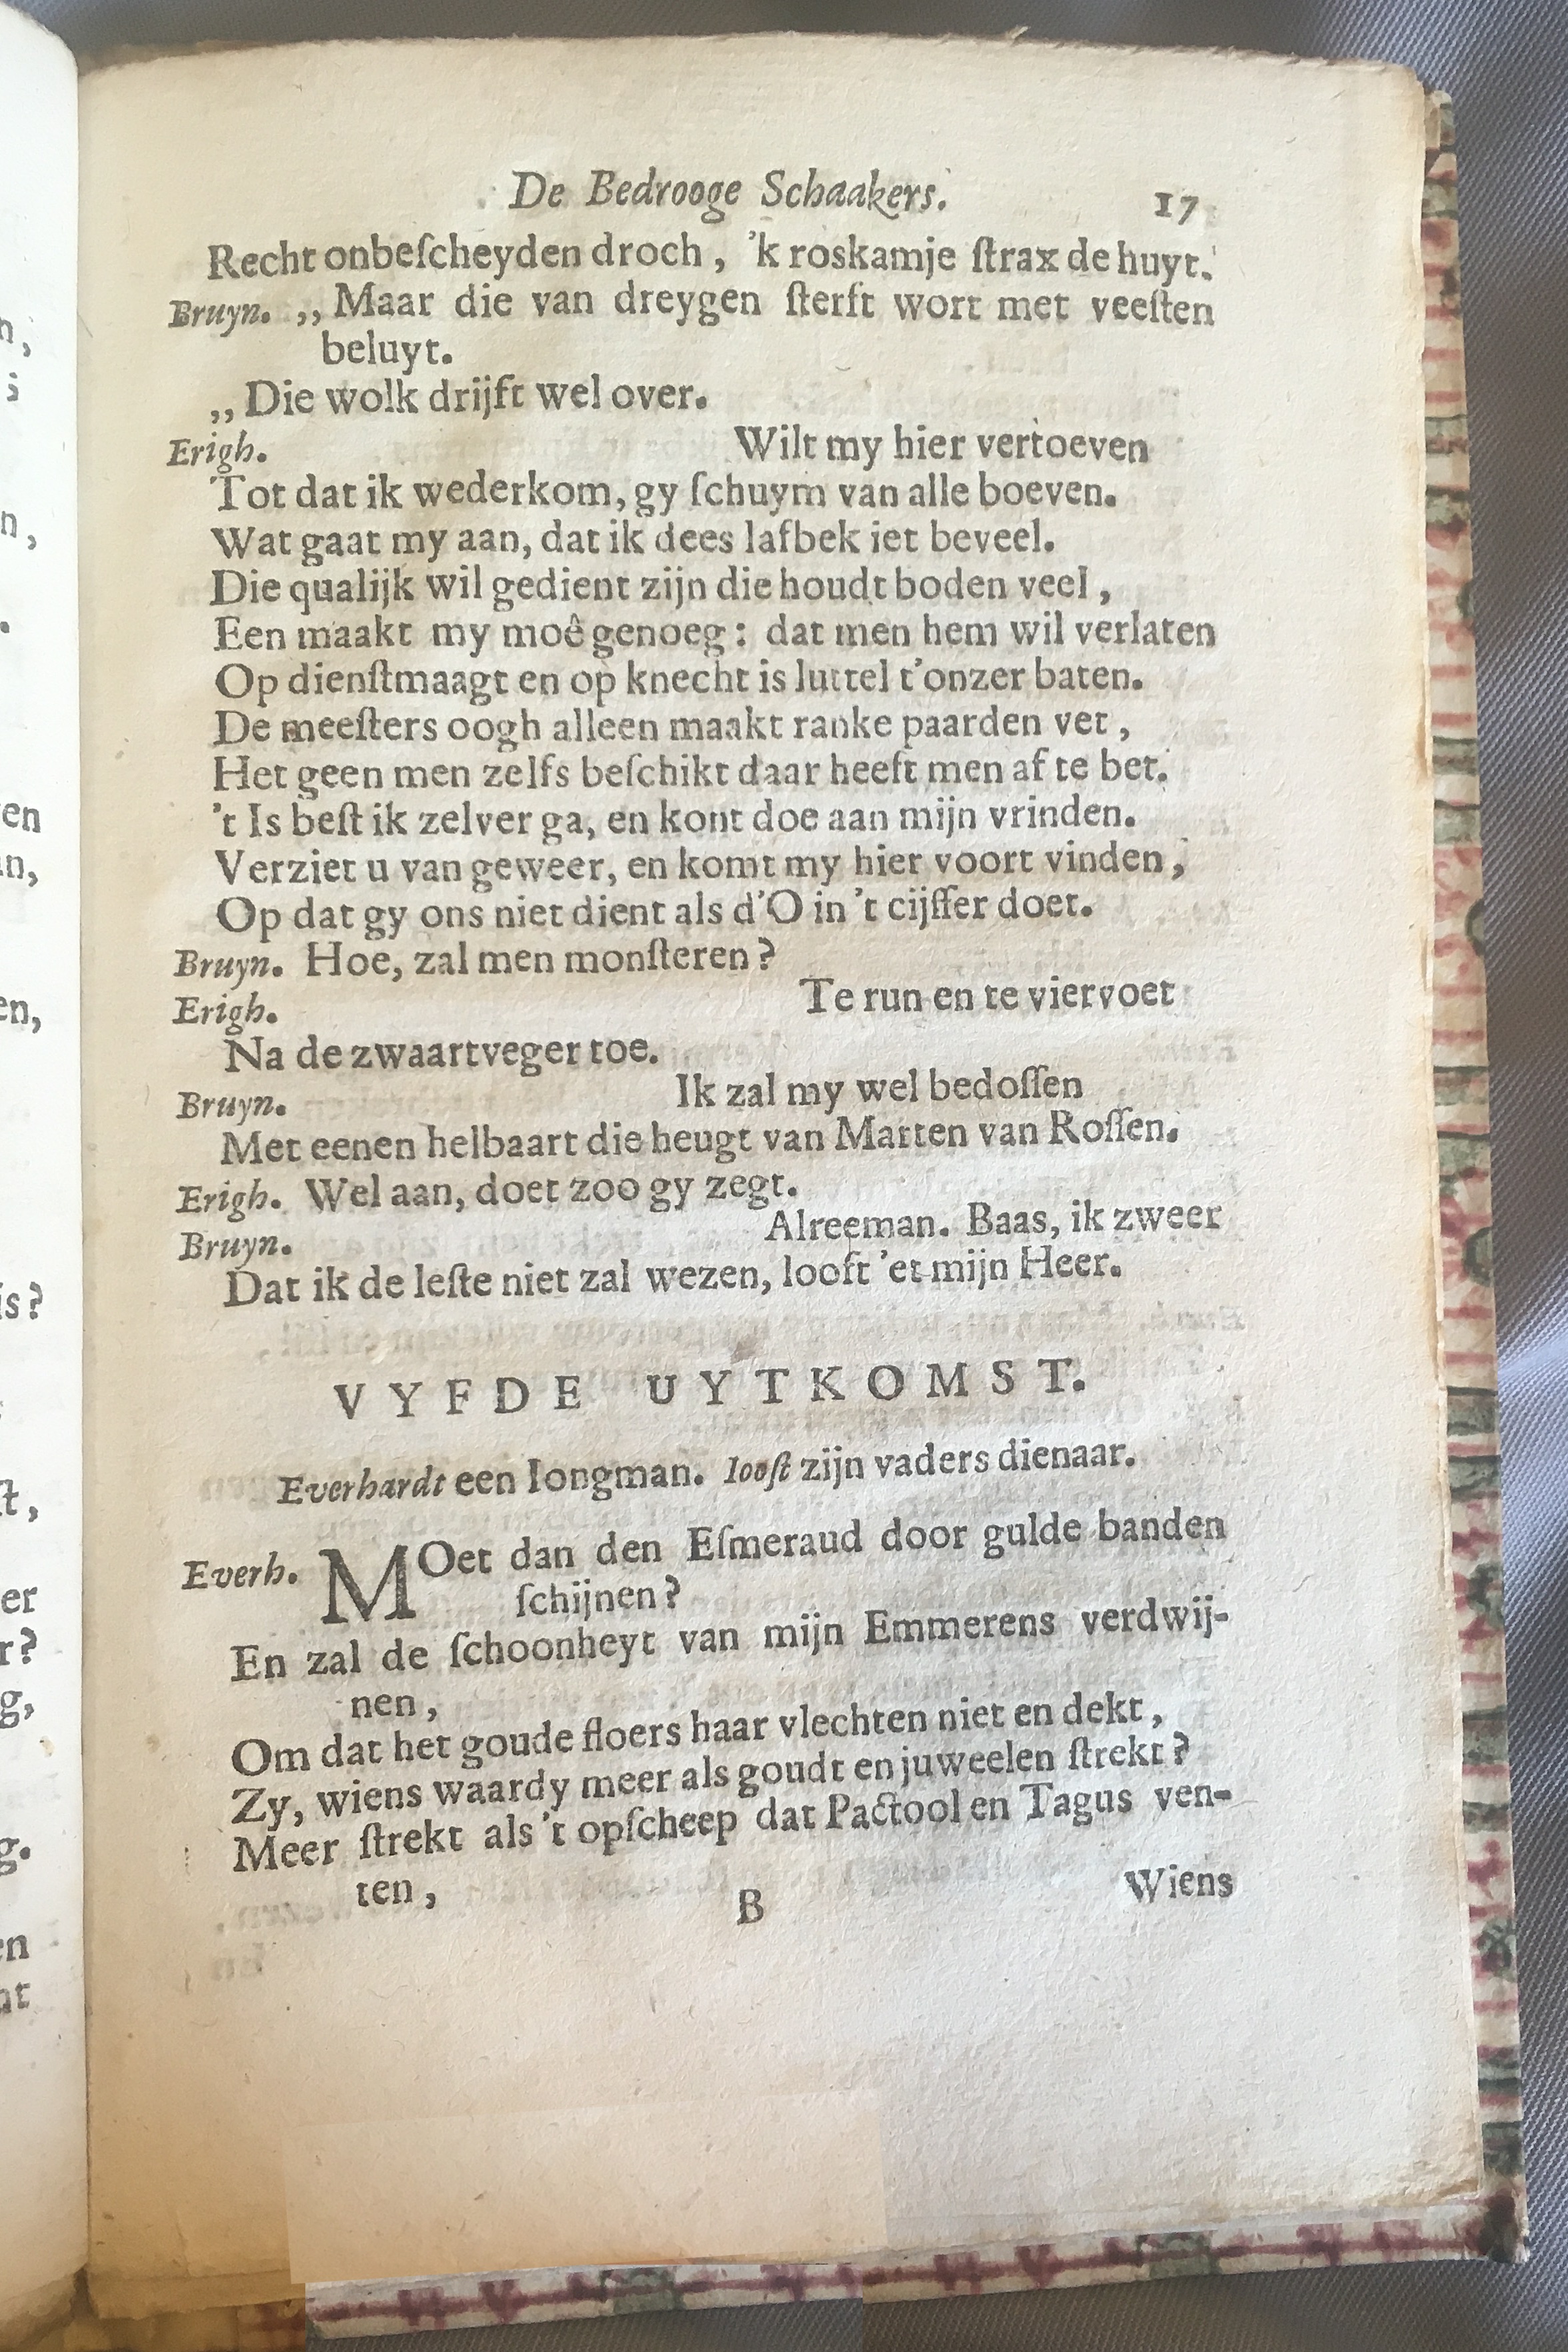 De Bedrooge Schaakers. 17
Recht onbeſcheyden droch, 'k roskamje ſtrax de huyt.
Bruyn. ,, Maar die van dreygen ſterft wort met veeſten
beluyt.
,, Die wolk drijft wel over.
Erigh. Wilt my hier vertoeven
Tot dat ik wederkom, gy ſchuym van alle boeven.
Wat gaat my aan, dat ik dees lafbek iet beveel.
Die qualijk wil gedient zijn die houdt boden veel,
Een maakt my moê genoeg: dat men hem wil verlaten
Op dienſtmaagt en op knecht is luttel t'onzer baten.
De meeſters oogh alleen maakt ranke paarden vet,
Het geen men zelfs beſchikt daar heeft men af te bet.
't Is beſt ik zelver ga, en kont doe aan mijn vrinden.
Verziet u van geweer, en komt my hier voort vinden,
Op dat gy ons niet dient als d'O in 't cijffer doet.
Bruyn. Hoe, zal men monſteren?
Erigh. Te run en te viervoet
Na de zwaartveger toe.
Bruyn. Ik zal my wel bedoſſen
Met eenen helbaart die heugt van Marten van Roſſen.
Erigh. Wel aan, doet zoo gy zegt.
Bruyn. Alreeman. Baas, ik zweer
Dat ik de leſte niet zal wezen, looft 'et mijn Heer.
VYFDE UYTKOMST.
Everhardt een Iongman. Iooſt zijn vaders dienaar.
Everh. MOet dan den Eſmeraud door gulde banden
ſchijnen?
En zal de ſchoonheyt van mijn Emmerens verdwij-
nen,
Om dat het goude floers haar vlechten niet en dekt,
Zy, wiens waardy meer als goudt en juweelen ſtrekt?
Meer ſtrekt als 't opſcheep dat Pactool en Tagus ven-
ten,
B Wiens